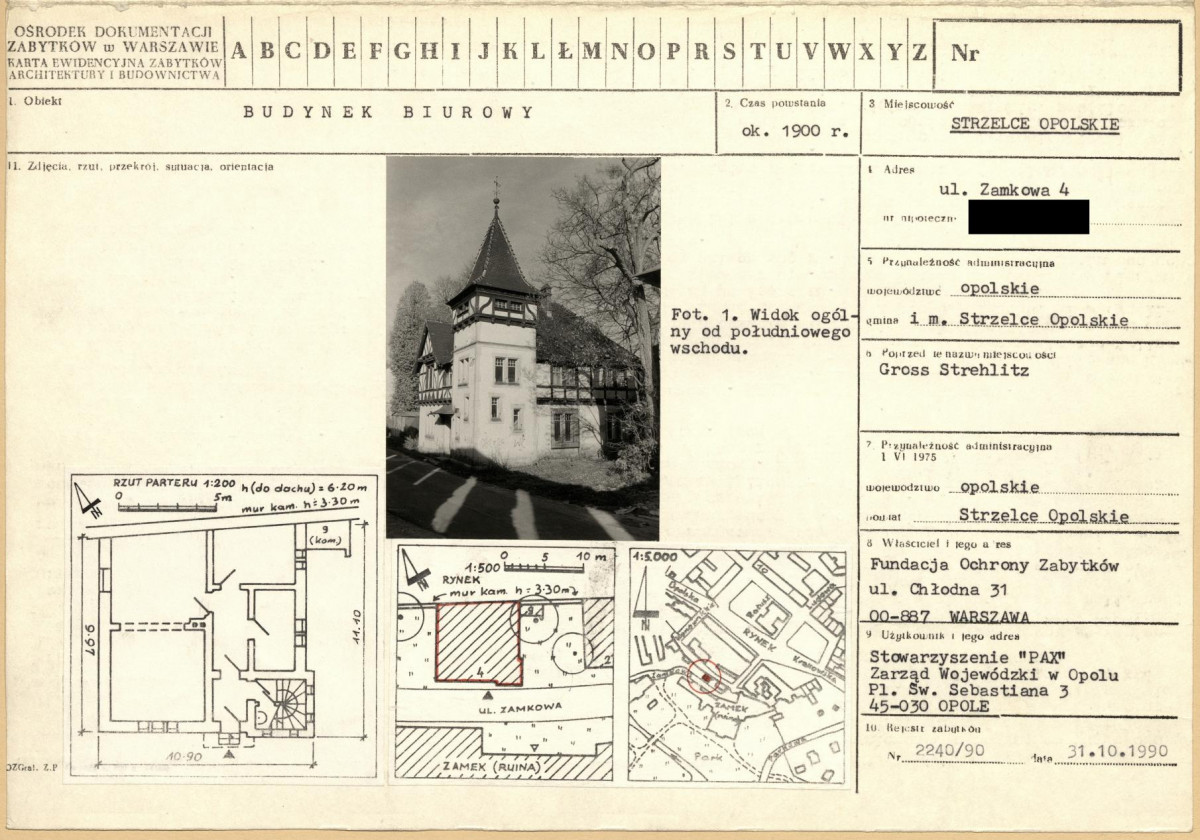 OŚRODEK DOKUMENTACJI
ZABYTKÓW w WARSZAWIE
KARTA EWIDENCYJNA ZABYTKÓW
ARCHITEKTURY I BUDOWNICTWA
A B C D E F G H I J K L Ł M N O P R S T U V W X Y Z
Nr
1. Obiekt
BUDYNEK BIUROWY
2. Czas powstania
ok. 1900 r.
3 Miejscowość
STRZELCE OPOLSKIE
11. Zdjęcia, rzut, przekrój, sytuacja, orientacja
4 Adres
ul. Zamkowa 4
nr hipoteczny
5 Przynależność administracyjna
województwo opolskie
gmina i m. Strzelce Opolskie
Fot. 1. Widok ogól-
ny od południowego
wschodu.
6 Poprzednie nazwy miejscowości
Gross Strehlitz
7. Przynależność administracyjna
1 VI 1975
województwo opolskie
powiat Strzelce Opolskie
8 Właściciel i jego adres
Fundacja Ochrony Zabytków
ul. Chłodna 31
00-887 WARSZAWA
9 Użytkownik i jego adres
Stowarzyszenie "PAX"
Zarząd Wojewódzki w Opolu
Pl. Św. Sebastiana 3
45-030 OPOLE
10. Rejestr zabytków
Nr 2240/90 data 31.10.1990
RZUT PARTERU 1:200 h (do dachu) = 6.20 m
0 5m mur kam. h = 3.30 m
g
(kom.)
9.97
11.10
10.90
1:500 0 5 10 m
RYNEK
mur kam. h = 3.30m
g
4
2
UL. ZAMKOWA
ZAMEK (RUINA)
1:5.000
Opolska
RYNEK
Krakowska
Zamkowa
ZAMEK
(ruina)
Park
Parkowa
OZGraf. Z.P